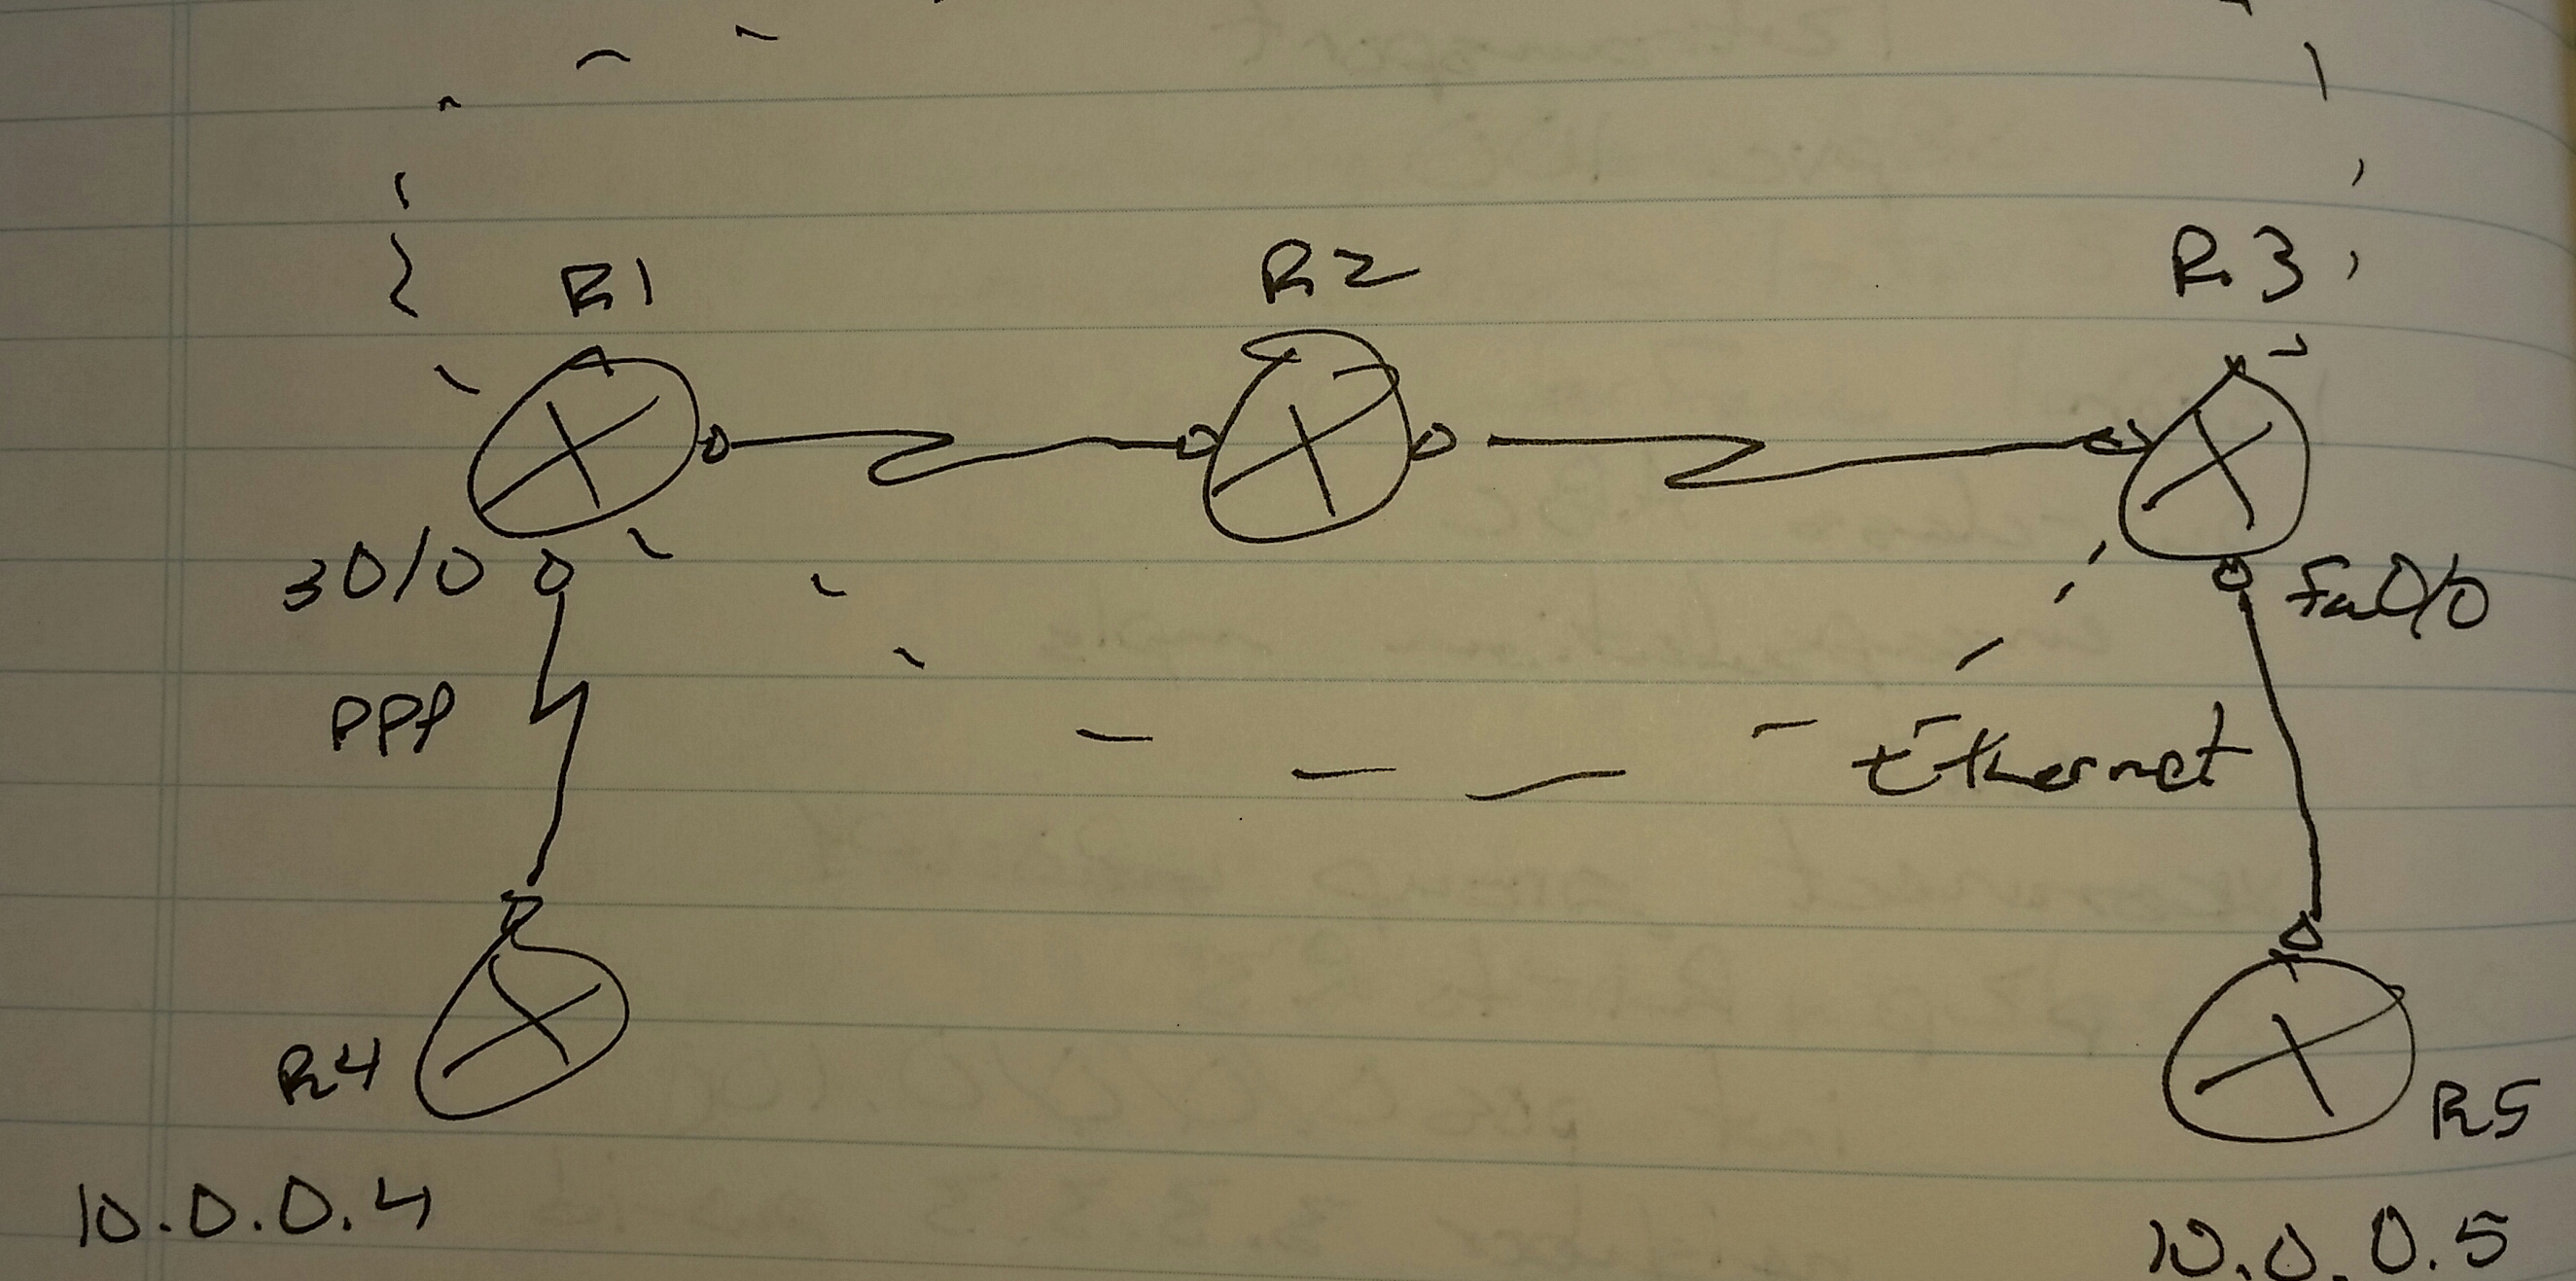 R1 R2 R3
S0/0 Fa0/0
PPP Ethernet
R4 R5
10.0.0.4 10.0.0.5